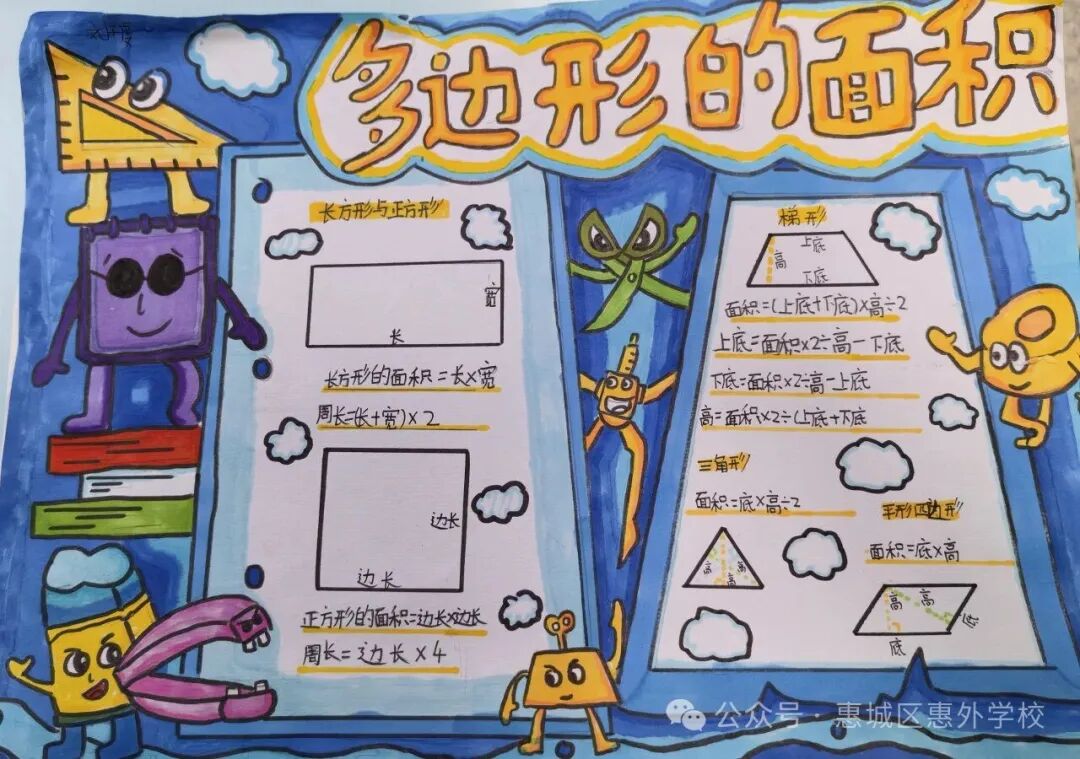 多边形的面积
长方形与正方形
宽
长
长方形的面积=长×宽
周长=(长+宽)×2
边长
边长
正方形的面积=边长×边长
周长=边长×4
梯形
上底
高
下底
面积=(上底+下底)×高÷2
上底=面积×2÷高-下底
下底=面积×2÷高-上底
高=面积×2÷(上底+下底
三角形
面积=底×高÷2
高
高
高
平形四边形
面积=底×高
高
高
底
底
公众号·惠城区惠外学校